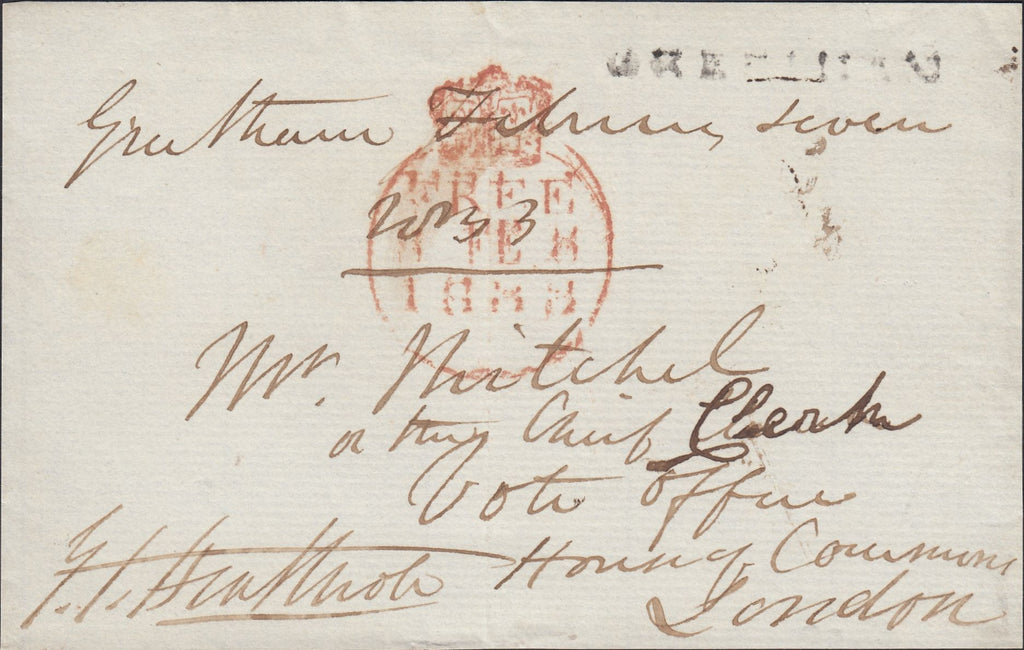 Grantham February seven
1833
FREE
FE 8
1833
Mr. Mitchel
or the Chief Clerk
Vote Office
House of Commons
London
G. J. Heathcote